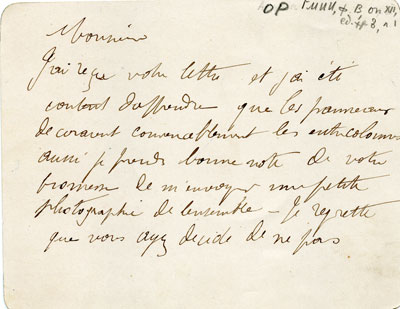 ОР ГМИИ, ф. В оп XII,
ед. хр 3, л. 1
Monsieur
J'ai reçu votre lettre et j'ai été
content d'apprendre que les panneaux
decoraient convenablement les entrecolonnes
aussi je prends bonne note de votre
promesse de m'envoyer une petite
photographie de l'ensemble — Je regrette
que vous ayez décidé de ne pas